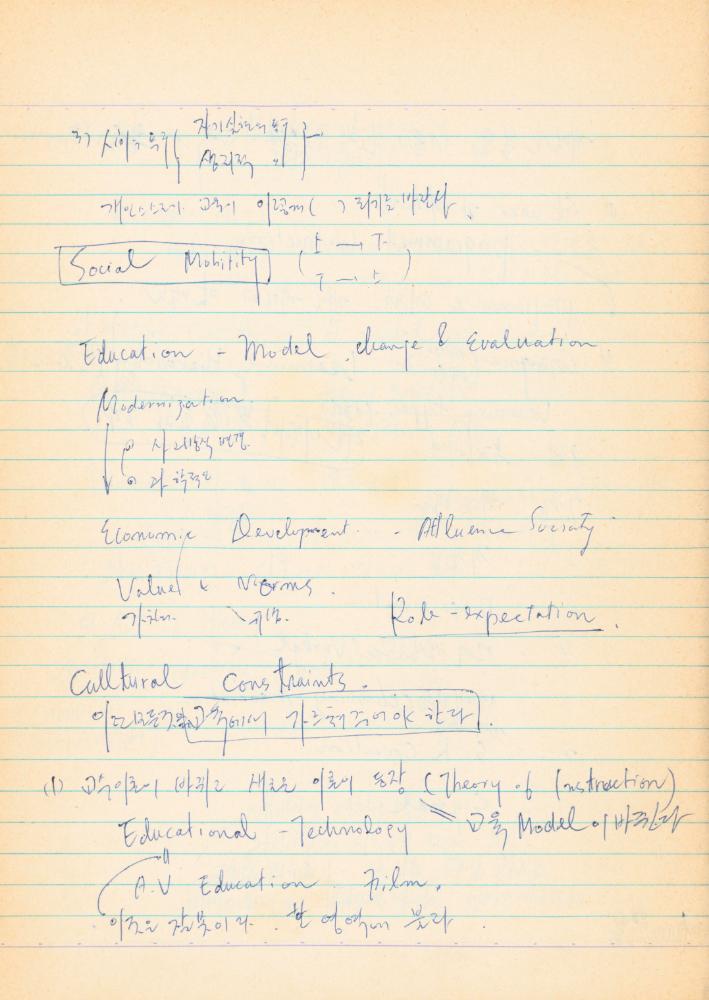 자기실현의 욕구
생리적 〃
개인 스스로가 교육이 이렇게 되기를 바란다.
Social Mobitity ( 上 → 下
下 → 上 )
Education - Model change & Evaluation
Modernization.
변경
과학적
Economic Development. - Affluence Society
Value & Norms.
가치 규범.
Role-expectation.
Culltural Constraints.
이 모든것을 교육에서 가르쳐주어야 한다.
(1) 교수이론이 바뀌고 새로운 이론이 등장 (Theory of Instruction)
Educational - Technology 교육 Model이 바뀐다
A.V Education Film.
이것은 잘못이다. 한 영역에 불과